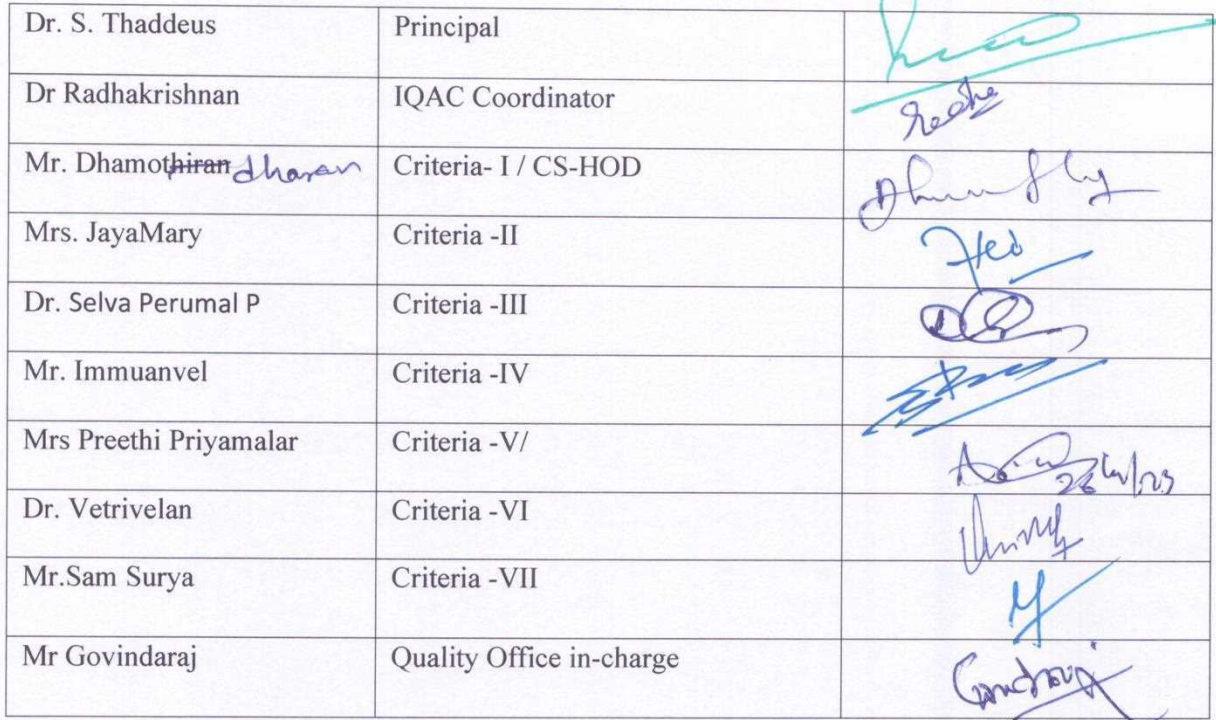 Dr. S. Thaddeus Principal
Dr Radhakrishnan IQAC Coordinator Radha
Mr. Dhamothiran dharan Criteria- I / CS-HOD
Mrs. JayaMary Criteria -II
Dr. Selva Perumal P Criteria -III
Mr. Immuanvel Criteria -IV
Mrs Preethi Priyamalar Criteria -V/
Dr. Vetrivelan Criteria -VI
Mr.Sam Surya Criteria -VII
Mr Govindaraj Quality Office in-charge